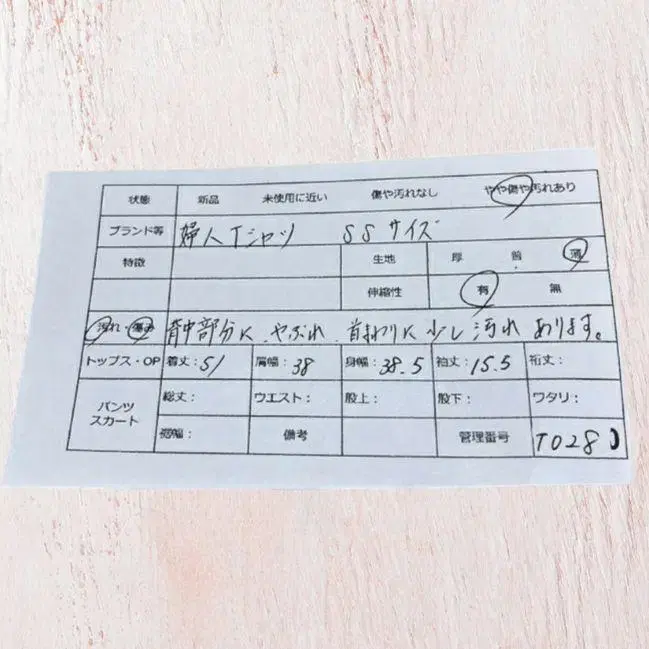 状態 新品 未使用に近い 傷や汚れなし やや傷や汚れあり
ブランド等 婦人Tシャツ SSサイズ
特徴 生地 厚 普 薄
伸縮性 有 無
汚れ・傷み 背中部分に、やぶれ、首まわりに少し汚れあります。
トップス・OP 着丈:51 肩幅:38 身幅:38.5 袖丈:15.5 裄丈:
パンツ スカート 総丈: ウエスト: 股上: 股下: ワタリ:
裾幅: 備考 管理番号 T028